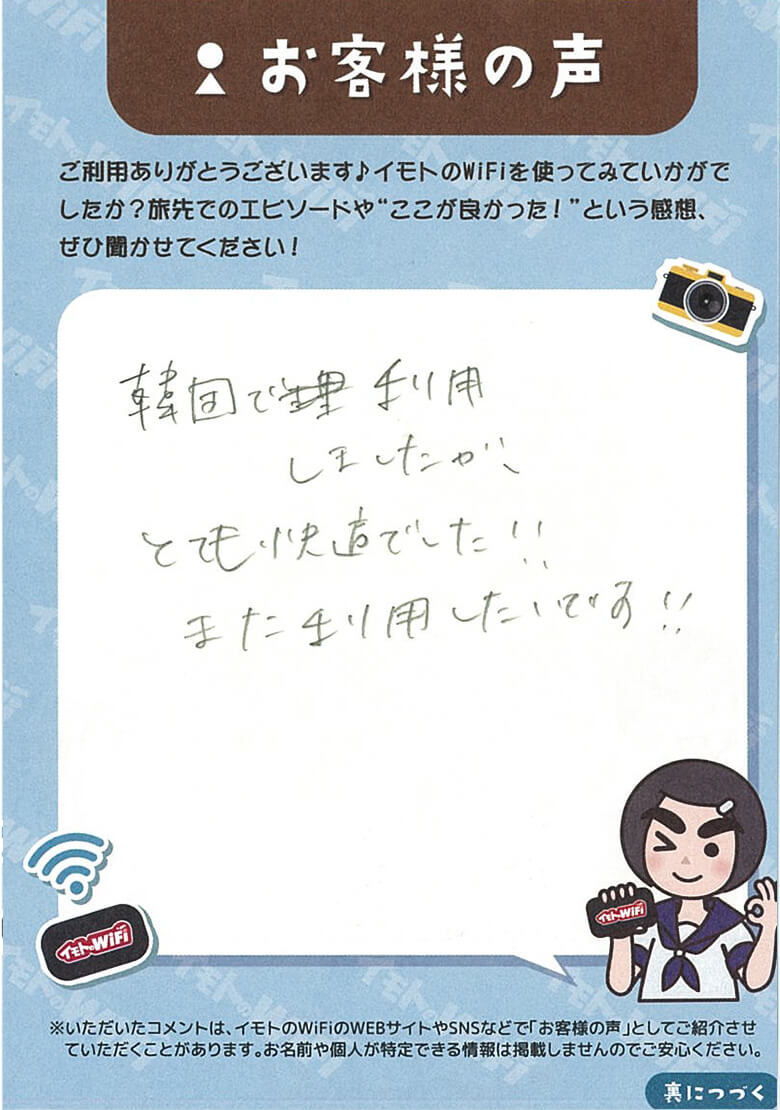 お客様の声
ご利用ありがとうございます♪イモトのWiFiを使ってみていかがで
したか?旅先でのエピソードや“ここが良かった!”という感想、
ぜひ聞かせてください!
韓国で 利用
しましたが、
とても快適でした!!
また利用したいです!!
イモトのWiFi
イモトのWiFi
※いただいたコメントは、イモトのWiFiのWEBサイトやSNSなどで「お客様の声」としてご紹介させ
ていただくことがあります。お名前や個人が特定できる情報は掲載しませんのでご安心ください。
裏につづく